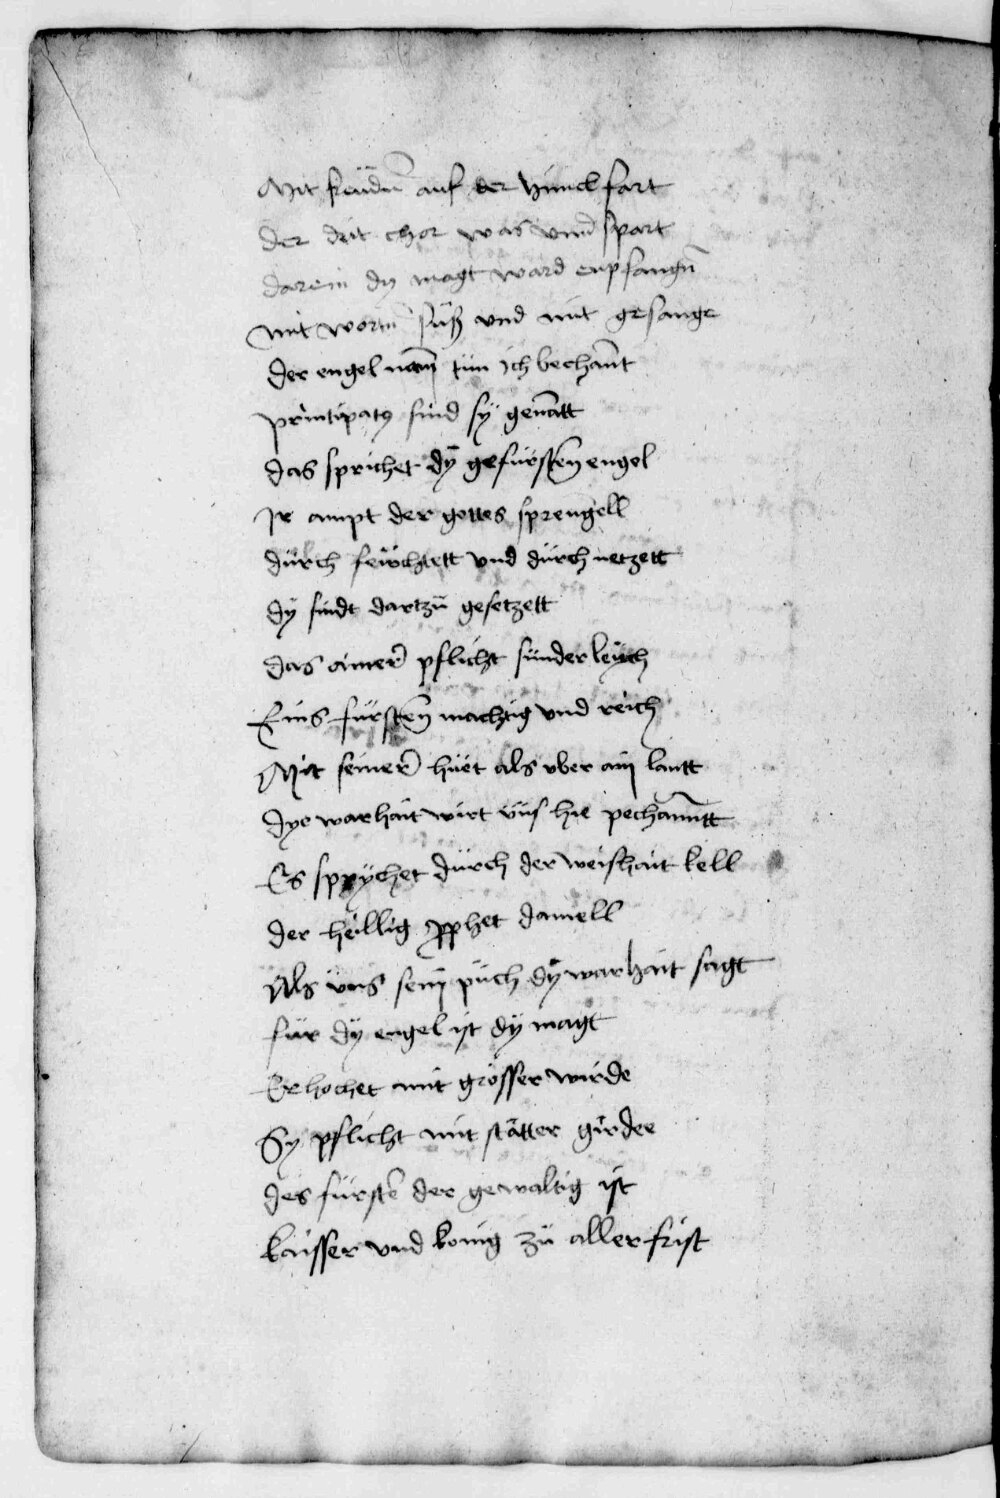 Mit freüdn̄ auf der himel fart
der drit chor was vnnd spart
darein dy magt ward enpfangn̄
mit wortn̄ süß vnd mit gesange
der engel nam̄ tün ich bechan̄t
printipatq sind sÿ genātt
das sprichet dÿ gefürsten̄ engel
Ir ampt der gottes sprengell
dürch feüchtett vnd dürch netzett
dÿ sindt dartzü gesetzett
das ainer pflicht sünderleych
Eins fürsten̄ machtig vnd reich
Mit seiner hüet als vber ain lantt
dye warhait wirt vns hie pechanntt
Es sprÿchet dürch der weishait kell
der heillig pphet daniell
Als vns sein püch dÿ warhait sagt
für dÿ engel ist dÿ magt
Erhochet mit grösser wirde
Sy pflicht mit stätter girdee
des fürstē der gewaltig ist
kaisser vnd konig zü aller frist